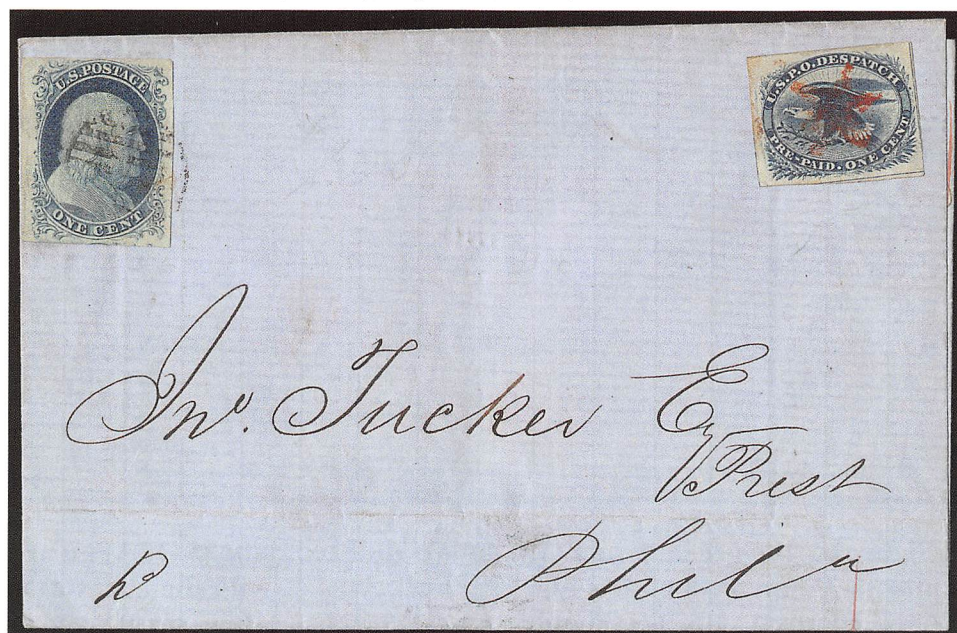 U.S. POSTAGE
ONE CENT
U.S.P.O. DESPATCH
PRE-PAID. ONE CENT
Jno. Tucker Esq
Prest
Phila